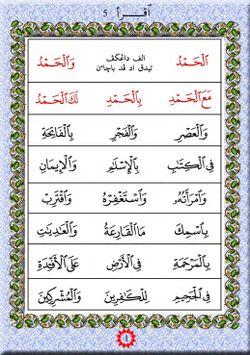 اقرأ ٥
اَلْحَمْدُ الف دڠكڤي تيدق اد ڤد باچاٴن وَالْحَمْدُ
مَعَ الْحَمْدِ بِالْحَمْدِ لَكَ الْحَمْدُ
وَالْعَصْرِ وَالْفَجْرِ بِالْفَاتِحَةِ
فِي الْكِتَابِ بِالْإِسْلَامِ وَالْإِيمَانِ
وَامْرَأَتُهُ وَاسْتَغْفِرْهُ وَاقْتَرِبْ
بِاسْمِكَ مَا الْقَارِعَةُ وَالْعَادِيَاتِ
بِالْمَرْحَمَةِ فِي الْأَرْضِ عَلَى الْأَفْئِدَةِ
فِي الْجَحِيمِ لِلْكَافِرِينَ وَالْمُشْرِكِينَ